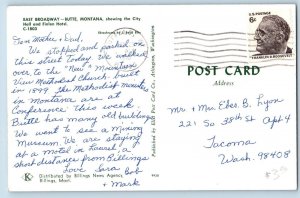 EAST BROADWAY—BUTTE, MONTANA, showing the City
Hall and Finlen Hotel.
C-1803
Dear Mother & Dad,
We stopped and parked on
this street today. We walked
over to the "Mai" & Mountain
View Methodist church, built
in 1899. The Methodist ministers
in montana are at
Conference this week.
Butte has many old buildings.
We went to see a Mining
Museum. We are staying
at a motel in Laurel, a
short distance from Billings
Love Sara Bob
& Mark
Distributed by Billings News Agency,
Billings, Mont.
K
U.S. POSTAGE
6¢
FRANKLIN D. ROOSEVELT
POST CARD
Address
Mr + Mrs Elez B. Lyon
221 So 38th St Apt 4
Tacoma
Wash. 98408